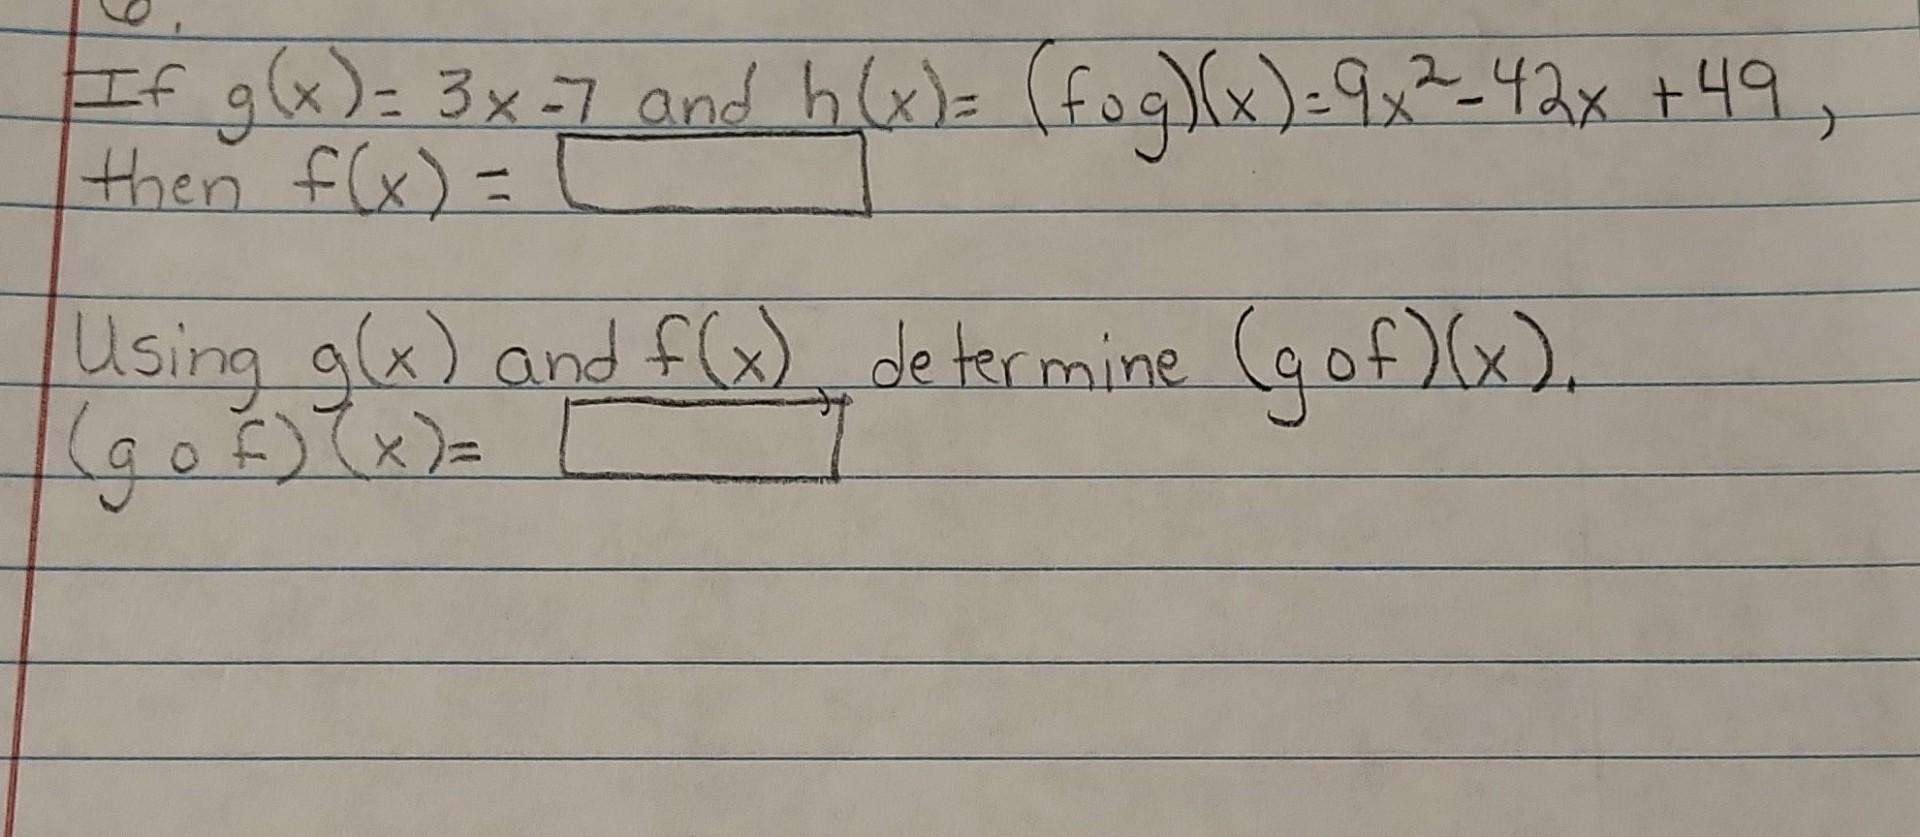 6.
If g(x)= 3x-7 and h(x)= (fog)(x)=9x²-42x +49,
then f(x) =
Using g(x) and f(x), determine (gof)(x).
(gof)(x)=